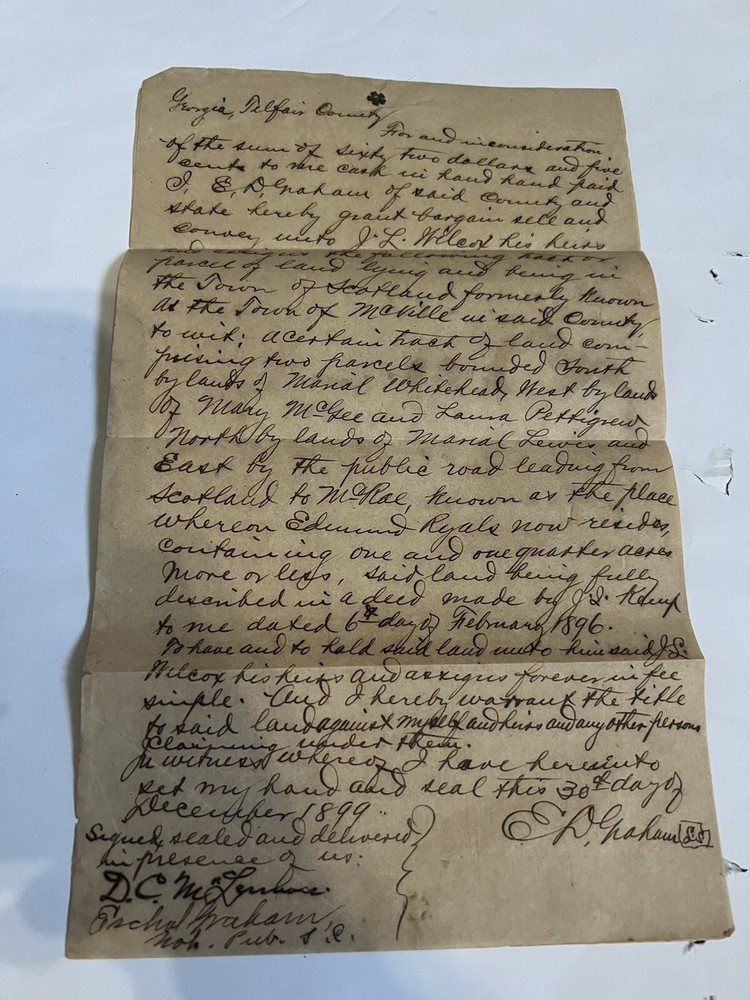 Georgia, Telfair County
For and in consideration
of the sum of sixty two dollars and five
cents to me cash in hand hand paid
I, E. D. Graham of said County and
state hereby grant bargain sell and
convey unto J. L. Wilcox his heirs
and assigns the following tract or
parcel of land lying and being in
the Town of Scotland formerly known
as the Town of McVille in said County,
to wit: a certain tract of land com-
prising two parcels bounded South
by lands of Marial Whitehead, West by lands
of Mary McGee and Laura Pettigrew
North by lands of Marial Lewis and
East by the public road leading from
Scotland to McRae, known as the place
whereon Edmund Ryals now resides,
containing one and one quarter acres
more or less, said land being fully
described in a deed made by J. I. Kemp
to me dated 6th day of February 1896.
To have and to hold said land unto him said J. L.
Wilcox his heirs and assigns forever in fee
simple. And I hereby warrant the title
to said land against myself and heirs and any other persons
claiming under them.
In witness whereof I have hereunto
set my hand and seal this 30th day of
December 1899.
E. D. Graham L.S.
Signed, sealed and delivered
in presence of us:
D. C.
Graham,
Not. Pub.